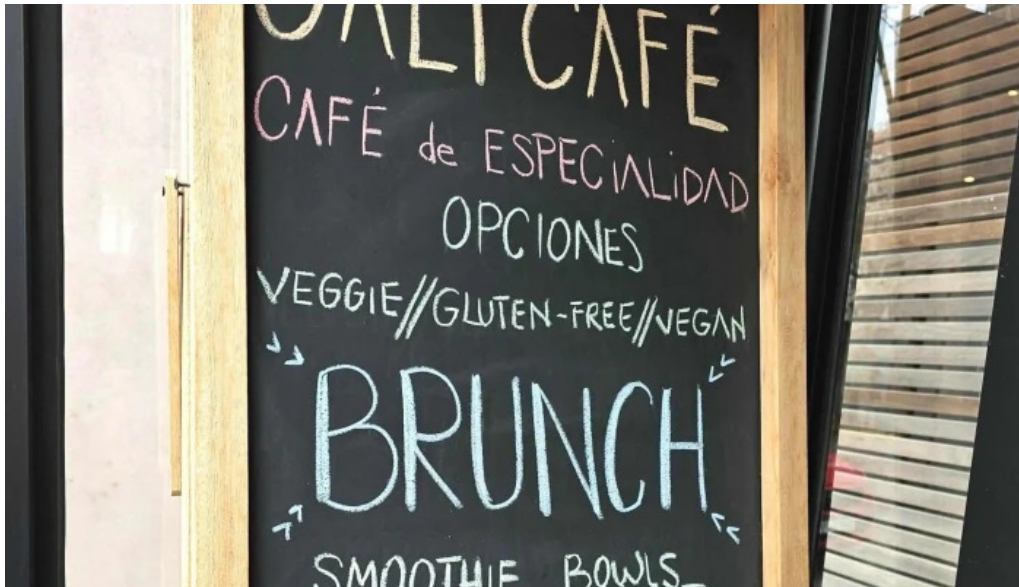 CAFÉ
CAFÉ de ESPECIALIDAD
OPCIONES
VEGGIE//GLUTEN-FREE//VEGAN
BRUNCH
SMOOTHIE BOWLS